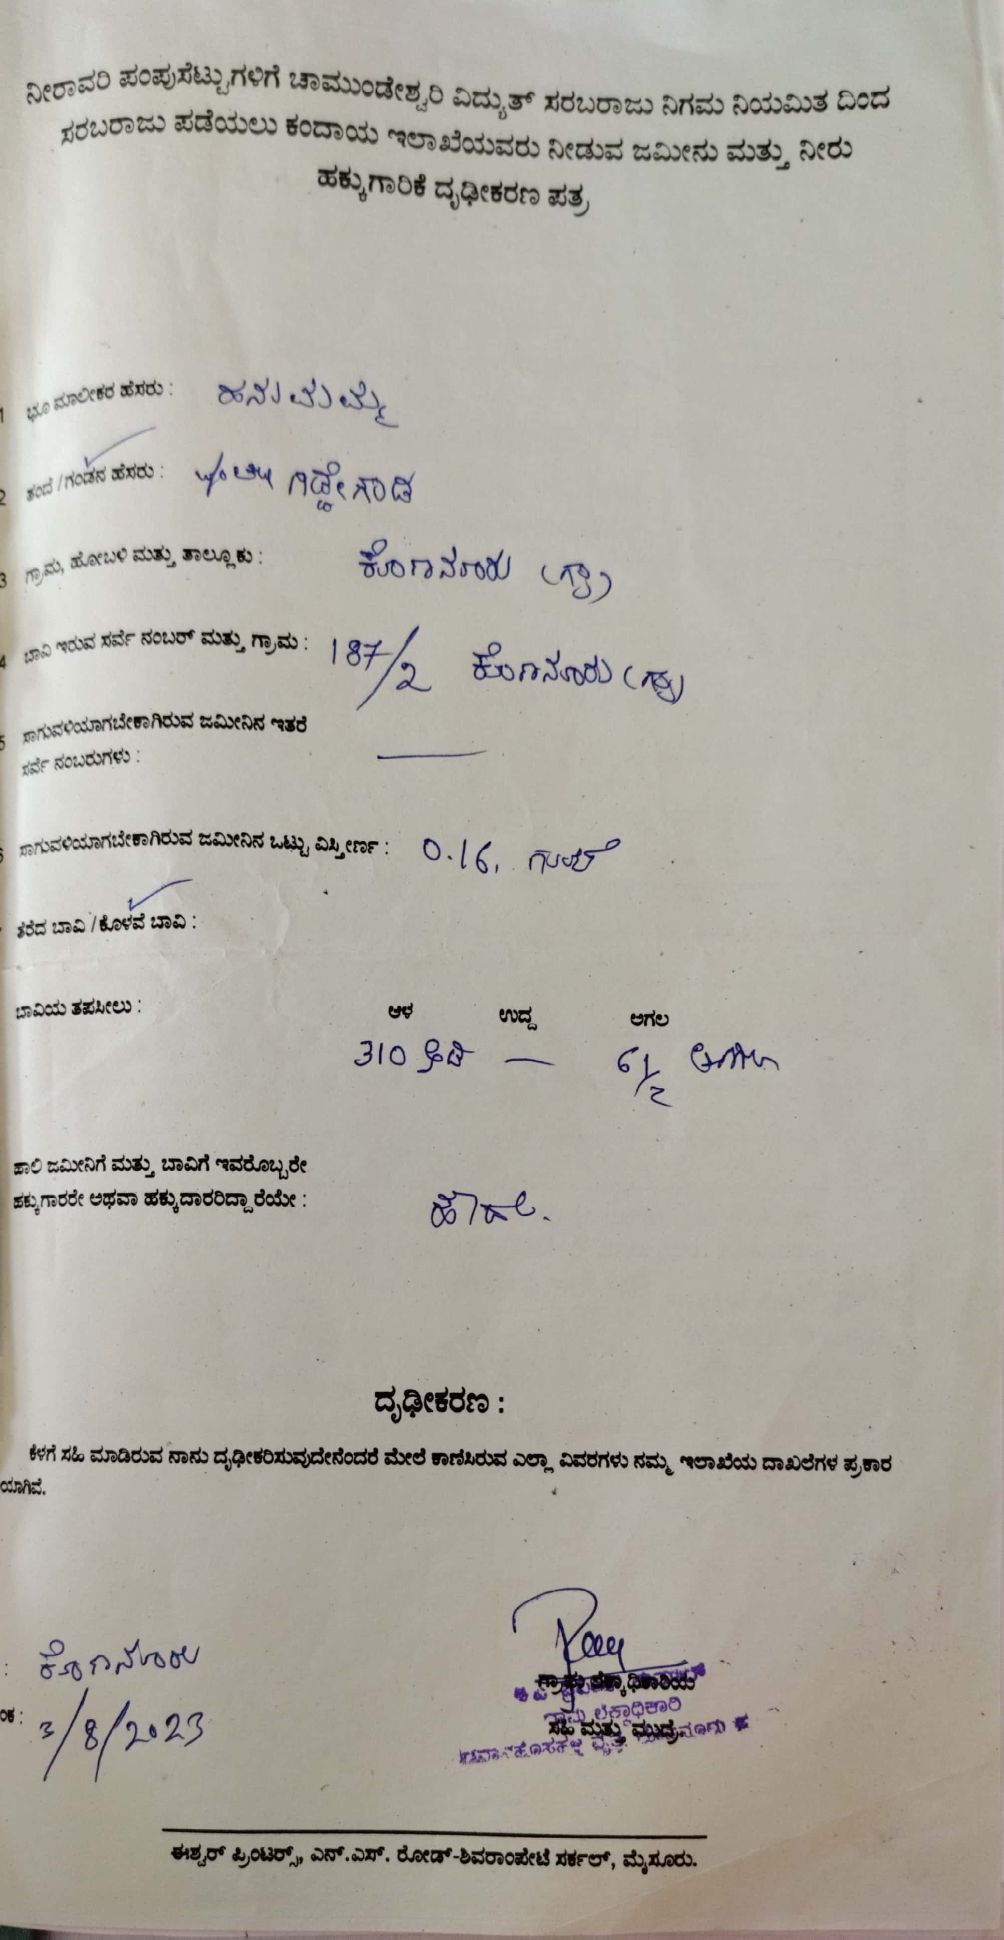 ನೀರಾವರಿ ಪಂಪುಸೆಟ್ಟುಗಳಿಗೆ ಚಾಮುಂಡೇಶ್ವರಿ ವಿದ್ಯುತ್ ಸರಬರಾಜು ನಿಗಮ ನಿಯಮಿತ ದಿಂದ
ಸರಬರಾಜು ಪಡೆಯಲು ಕಂದಾಯ ಇಲಾಖೆಯವರು ನೀಡುವ ಜಮೀನು ಮತ್ತು ನೀರು
ಹಕ್ಕುಗಾರಿಕೆ ದೃಢೀಕರಣ ಪತ್ರ
1 ಭೂ ಮಾಲೀಕರ ಹೆಸರು : ಹನುಮಮ್ಮ
2 ತಂದೆ / ಗಂಡನ ಹೆಸರು : ಗಿಡ್ಡೇಗೌಡ
3 ಗ್ರಾಮ, ಹೋಬಳಿ ಮತ್ತು ತಾಲ್ಲೂಕು : ಕೊಗನೂರು (ಗ್ರಾ)
4 ಬಾವಿ ಇರುವ ಸರ್ವೆ ನಂಬರ್ ಮತ್ತು ಗ್ರಾಮ : 187/2 ಕೊಗನೂರು (ಗ್ರಾ)
5 ಸಾಗುವಳಿಯಾಗಬೇಕಾಗಿರುವ ಜಮೀನಿನ ಇತರೆ
ಸರ್ವೆ ನಂಬರುಗಳು : —
6 ಸಾಗುವಳಿಯಾಗಬೇಕಾಗಿರುವ ಜಮೀನಿನ ಒಟ್ಟು ವಿಸ್ತೀರ್ಣ : 0.16. ಗುಂಟೆ
ತೆರೆದ ಬಾವಿ / ಕೊಳವೆ ಬಾವಿ :
ಬಾವಿಯ ತಪಸೀಲು : ಆಳ ಉದ್ದ ಅಗಲ
310 ಅಡಿ — 6 1/2 ಅಂಗುಲ
ಹಾಲಿ ಜಮೀನಿಗೆ ಮತ್ತು ಬಾವಿಗೆ ಇವರೊಬ್ಬರೇ
ಹಕ್ಕುಗಾರರೇ ಅಥವಾ ಹಕ್ಕುದಾರರಿದ್ದಾರೆಯೇ : ಹೌದು.
ದೃಢೀಕರಣ :
ಕೆಳಗೆ ಸಹಿ ಮಾಡಿರುವ ನಾನು ದೃಢೀಕರಿಸುವುದೇನೆಂದರೆ ಮೇಲೆ ಕಾಣಿಸಿರುವ ಎಲ್ಲಾ ವಿವರಗಳು ನಮ್ಮ ಇಲಾಖೆಯ ದಾಖಲೆಗಳ ಪ್ರಕಾರ
ಯಾಗಿವೆ.
: ಕೊಗನೂರು
ಂಕ : 3/8/2023
ಗ್ರಾಮ ಲೆಕ್ಕಾಧಿಕಾರಿಯ
ಗ್ರಾಮ ಲೆಕ್ಕಾಧಿಕಾರಿ
ಸಹಿ ಮತ್ತು ಮುದ್ರೆ
ಈಶ್ವರ್ ಪ್ರಿಂಟರ್ಸ್, ಎನ್.ಎಸ್. ರೋಡ್-ಶಿವರಾಂಪೇಟೆ ಸರ್ಕಲ್, ಮೈಸೂರು.